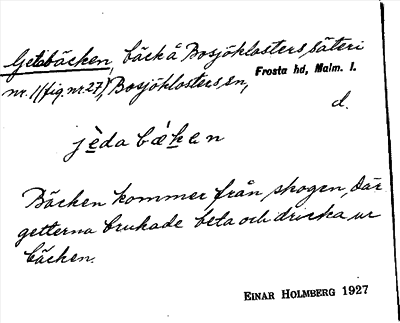 Getabäcken, bäck å Bosjöklosters, säteri
nr. 1 (fig. nr 27,) Bosjöklosters sn, Frosta hd, Malm. l.
d.
jèdabékan
Bäcken kommer från skogen, där
getterna brukade beta och dricka ur
bäcken.
EINAR HOLMBERG 1927